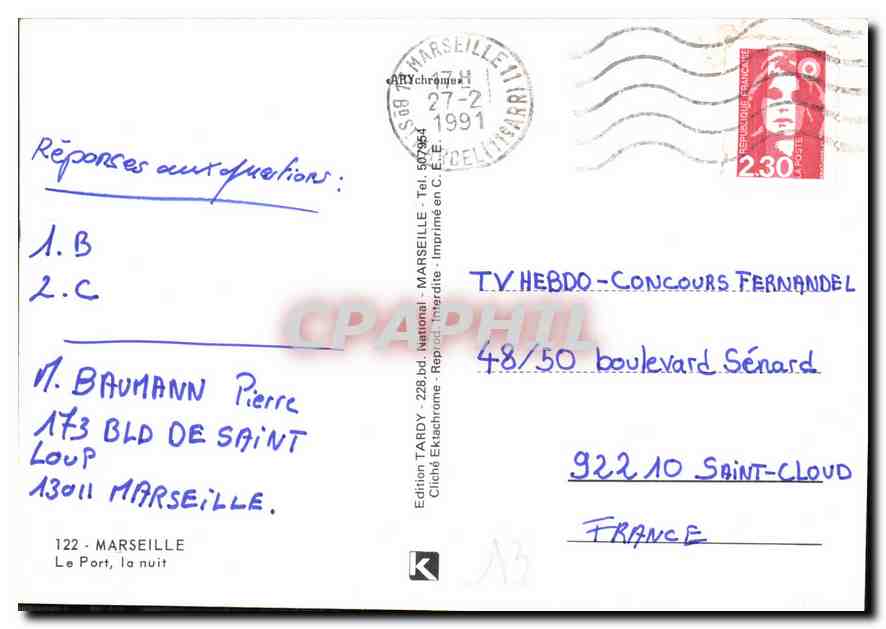 Réponses aux questions :
1. B
2. C
M. BAUMANN Pierre
173 BLD DE SAINT
LOUP
13011 MARSEILLE.
122 - MARSEILLE
Le Port, la nuit
Edition TARDY - 228, bd. National - MARSEILLE - Tel. 507954
Cliché Ektachrome - Reprod. Interdite - Imprimé en C. E. E.
«ARYchrome»
MARSEILLE 11
17 H
27-2
1991
RÉPUBLIQUE FRANÇAISE
LA POSTE
2.30
TV HEBDO - CONCOURS FERNANDEL
48/50 boulevard Sénard
92210 SAINT-CLOUD
FRANCE
K
13
CPAPHIL